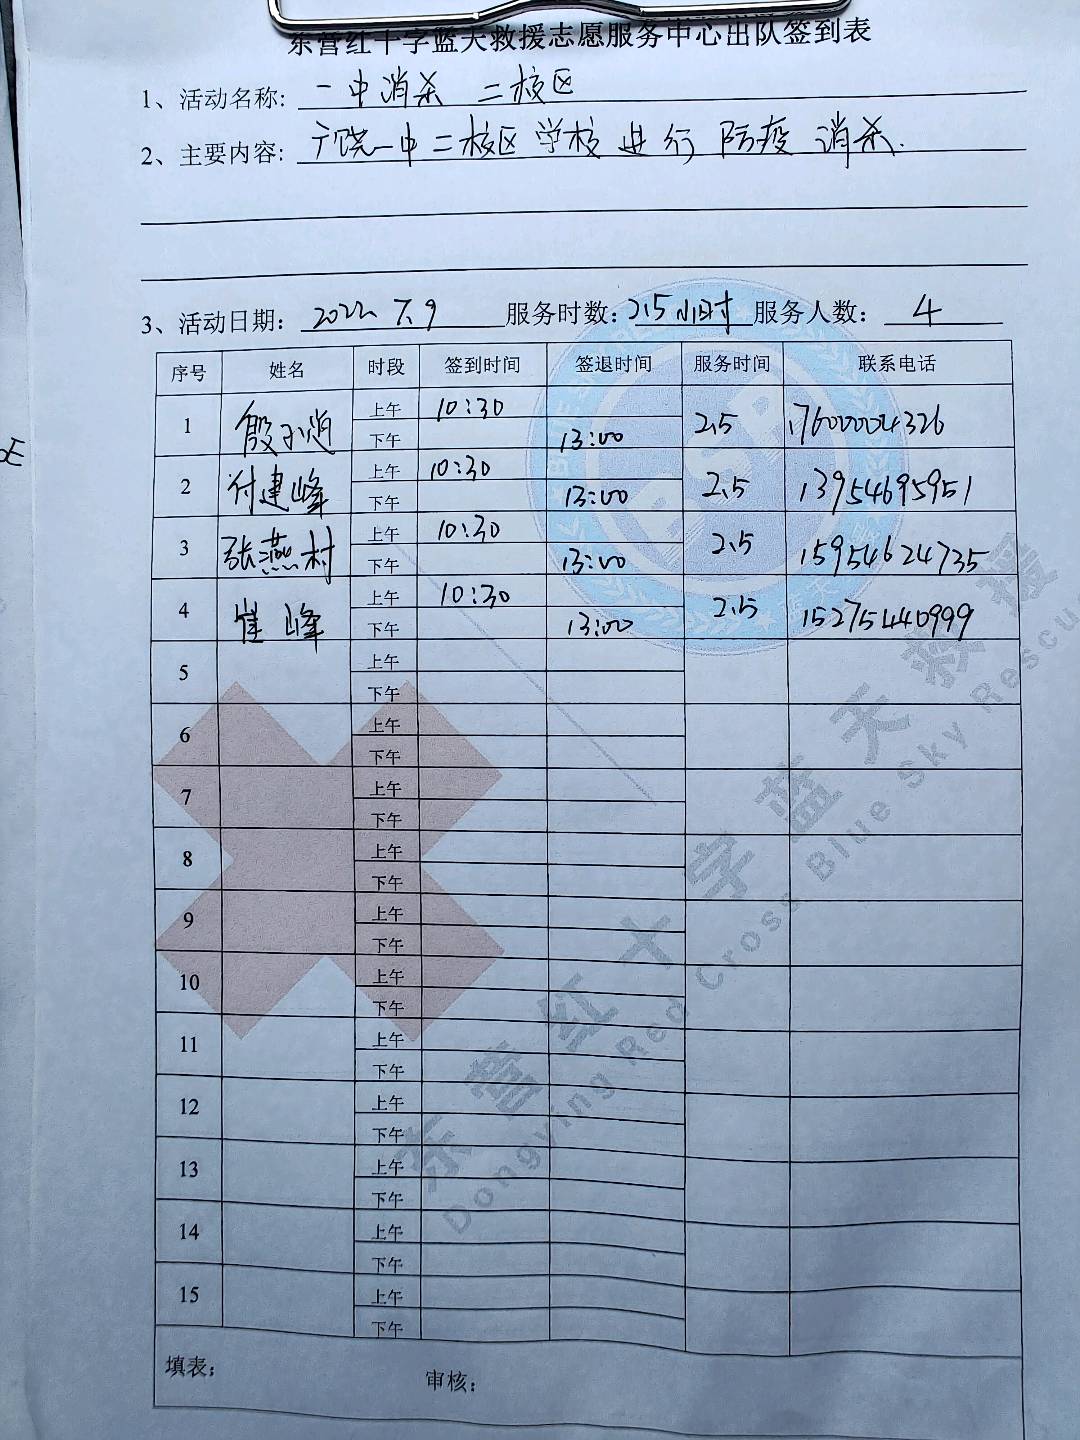 东营红十字蓝天救援志愿服务中心出队签到表
1、活动名称: 一中消杀 二校区
2、主要内容: 广饶一中二校区学校进行防疫消杀.
3、活动日期: 2022 7.9 服务时数: 2.5小时 服务人数: 4
序号 姓名 时段 签到时间 签退时间 服务时间 联系电话
1 殷小 上午 10:30 2.5 17600004326
下午 13:00
2 付建峰 上午 10:30 2.5 13954695951
下午 13:00
3 张燕村 上午 10:30 2.5 15954624735
下午 13:00
4 崔峰 上午 10:30 2.5 15275440999
下午 13:00
5 上午
下午
6 上午
下午
7 上午
下午
8 上午
下午
9 上午
下午
10 上午
下午
11 上午
下午
12 上午
下午
13 上午
下午
14 上午
下午
15 上午
下午
填表: 审核:
东营红十字蓝天救援
Dongying Red Cross Blue Sky Rescu